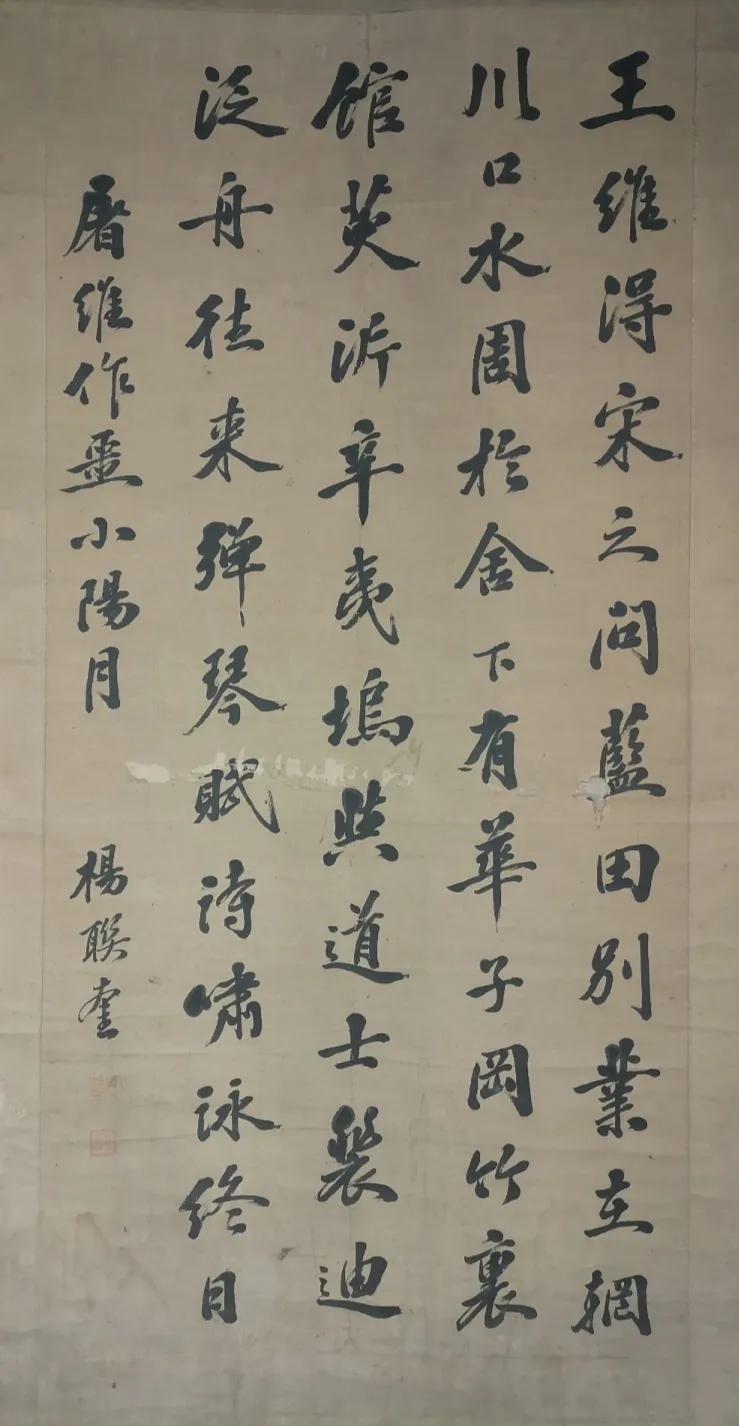 王維得宋之問藍田別業在輞
川口水周於舍下有華子岡竹裏
館茱沜辛夷塢與道士裴迪
泛舟往來彈琴賦詩嘯詠終日
屠維作噩小陽月
楊聯奎